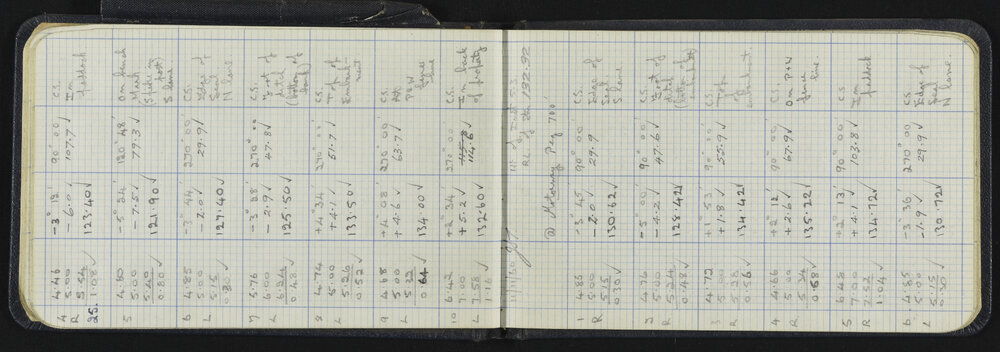 4 4.46 -3° 12' 90° 00' C.S.
R 5.00 -6.0✓ 107.7✓ In
5.54 123.40✓ paddock
25. 1.08✓
5 4.60 -5° 34' 120° 48' On bench
5.00 -7.5✓ 79.3✓ Mark
5.40 121.90✓ (spike in
0.80✓ post)
S lane
6 4.85 -3° 44' 270° 00' C.S.
L 5.00 -2.0✓ 29.9✓ Edge of
5.15 127.40✓ Seal
0.30✓ N lane
7 4.76 -3° 28' 270° 00' C.S.
L 6.00 -2.9✓ 47.8✓ Foot of
6.24 125.50✓ ditch
0.48✓ (bottom of
8 4.74 +4° 34' 270° 00' C.S.
L 5.00 +4.1✓ 51.7✓ Top of
5.26 133.50✓ Embank-
0.52✓ ment
9 4.68 +4° 08' 270° 00' C.S.
L 5.00 +4.6✓ 63.7✓ P&W
5.32 134.00✓ fence
0.64✓ line
10 6.42 +2° 34' 270° 00' C.S.
L 7.00 +5.2✓ 114.6✓ In back
7.58 132.60✓ of property
1.16✓
RL of 132.92
@ Motorway Peg 700'
1 4.85 -3° 45' 90° 00' C.S.
R 5.00 -2.0✓ 29.9 Edge of
5.15 130.62✓ Seal
0.30✓ S lane
2 4.76 -5° 09' 90° 00' C.S.
R 5.00 -4.2✓ 47.6✓ Foot of
5.24 128.42✓ ditch
0.48✓ (bottom of
3 4.72 +1° 53' 90° 00' C.S.
R 5.00 +1.8✓ 55.9✓ Top of
5.28 134.42✓ embankment.
0.56✓
4 4.66 +2° 12' 90° 00' C.S.
R 5.00 +2.6✓ 67.9✓ On P+W
5.34 135.22✓ fence
0.68✓ line.
5 6.48 +2° 13' 90° 00' C.S.
R 7.00 +4.1✓ 103.8✓ In
7.52 134.72✓ paddock
1.04✓
6 4.85 -3° 36' 270° 00' C.S.
L 5.00 -1.9✓ 29.9✓ Edge of
5.15 130.72✓ Seal
0.30✓ N lane.